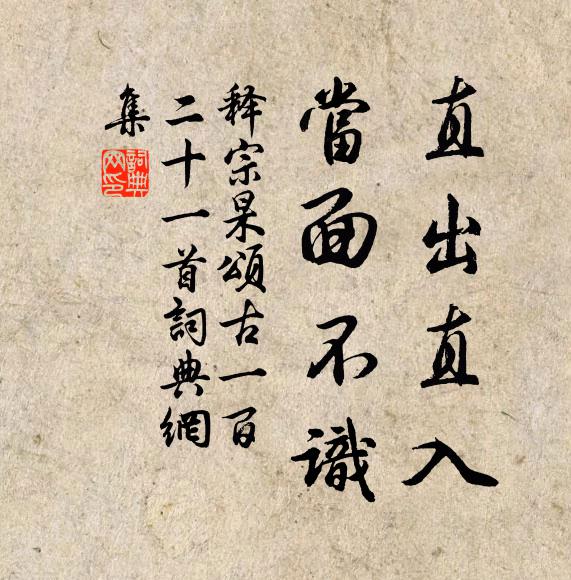 直出直入
當面不識
释宗杲頌古一百
二十一首詞典網
集
詞典網印